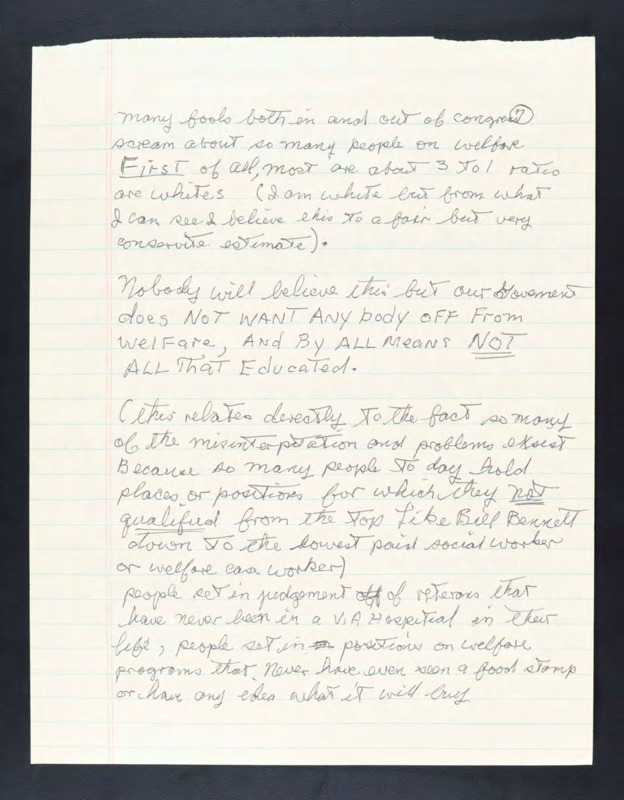 many fools both in and out of congress 7
scream about so many people on welfare
First of all, most are about 3 to 1 ratio
are whites (I am white but from what
I can see I believe this to a fair but very
conservite estimate).
Nobody will believe this but our Goverment
does NOT WANT ANY body OFF From
WelFare, And By ALL MeANS NOT
ALL That Educated.
(this relates derectly to the fact so many
of the misinterpitation and problems exsist
Because so many people to day hold
places or positions for which they not
qualified from the top Like Bill Bennett
down to the lowest paid social worker
or welfare case worker)
people set in judgement off of veterans that
have never been in a V.A Hospitial in their
life, people set in positions on welfare
programs that Never have even seen a food stamp
or have any idea what it will buy